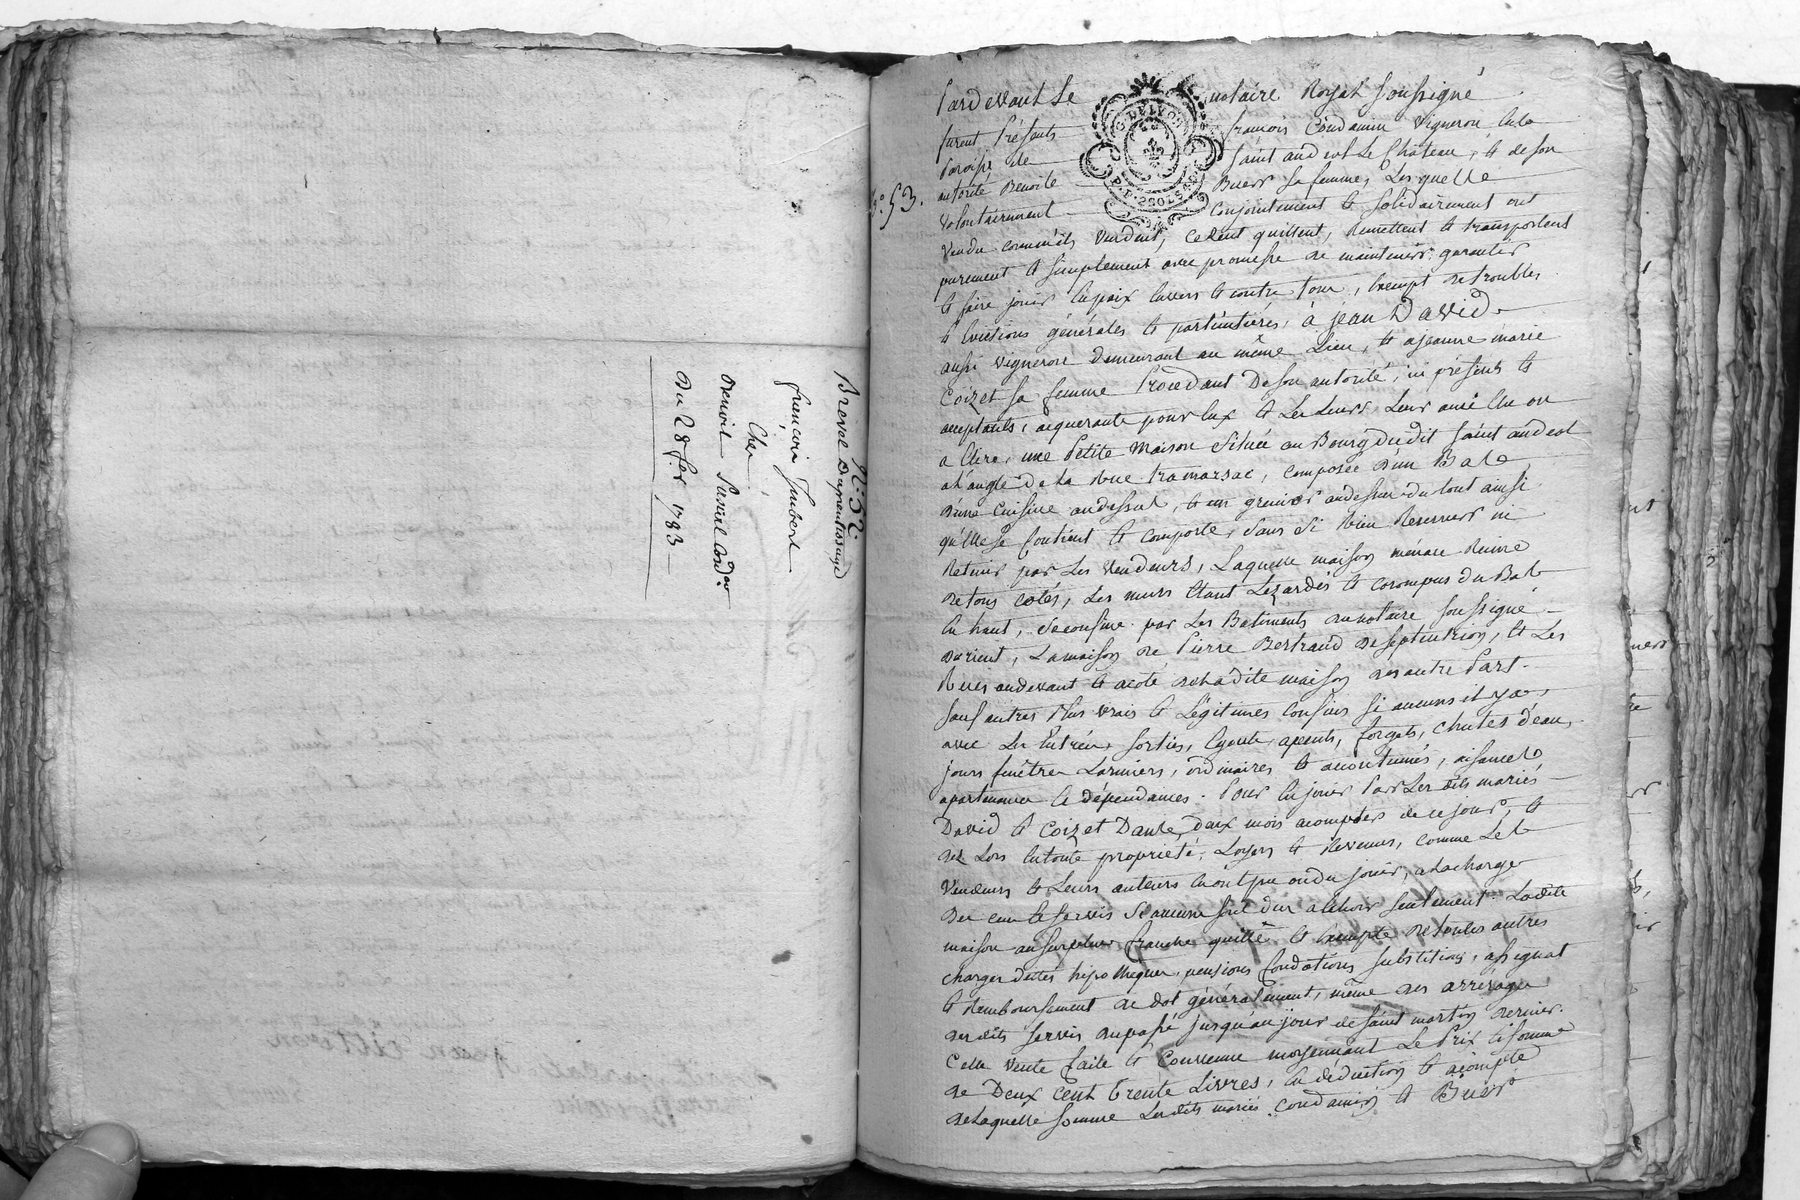 N.° 52.
Brevet d'aprentissage
françois Jmbert
Chés
Benoit
Du 28 fer 1783
N.° 53.
G. DE LYON
P.P. 2 SOLS 4 D.
Pardevant Le notaire Royal soussigné
furent Présents françois Condamin vigneron en la
Paroisse de saint andeol Le Château, & de son
autorité Benoite Buer sa femme, Lesquelle
volontairement conjointement & solidairement ont
vendu comme ils vendent, cedent quittent, Remettent & transportent
purement & simplement avec promesse de maintenir, garantir
& faire jouir en paix envers & contre tous, Exempt de troubles
& Evictions générales & particulieres, à jean David
aussi vigneron demeurant au même Lieu, & a jeanne marie
Coizet sa femme Procedant De son autorité, ici présents &
acceptants, aquerants pour Eux & Les Leurs, Leur amis Elu ou
a Elire, une Petite Maison située au Bourg dudit saint andeol
a l'angle de La Rue tramarsac, composée d'un Bas
d'une cuisine audessus, & un grenier audessus du tout ainsi
qu'Elle se Contient & comporte, sans si Rien Reserver ni
Retenir par Les Vendeurs, Laquelle maison ménace Ruine
de tous cotés, Les murs Etant Lezardés & corompus du Bas
En haut, se confine par Les Batiments du notaire soussigné
d'orient, La maison de Pierre Bertrand de septentrion, & Les
Rues audevant & a coté de la dite maison des autre Part
sauf autres Plus vrais & Légitimes Confins si aucuns il y a,
avec Les Entrées, sorties, Egouts, apents, forgets, chutes d'eau,
jours fenêtres Larmiers, ordinaires & acoutumés, aisances
apartenances & dépendances. Pour En jouir Par Les dits mariés
David & Coizet Dans deux mois acompter de ce jour, &
dès Lors En toute proprieté, Loyers & Revenus, comme Les
Vendeurs & Leurs auteurs En ont pu ou du jouir, a La charge
Des cens & servis si aucuns sont dus a Echoir seulement. Ladite
maison au surplus franche quitte & Exempte de toutes autres
charges dettes hipotheques, pensions fondations substitions, assignat
& Remboursement de dot généralement, même des arrérages
desdits servis du passé jusqu'au jour de saint martin dernier.
Cette vente faite & Convenue moyennant Le Prix & somme
de Deux Cent trente Livres, En déduction & acompte
de Laquelle somme Lesdits mariés Condamin & Buer